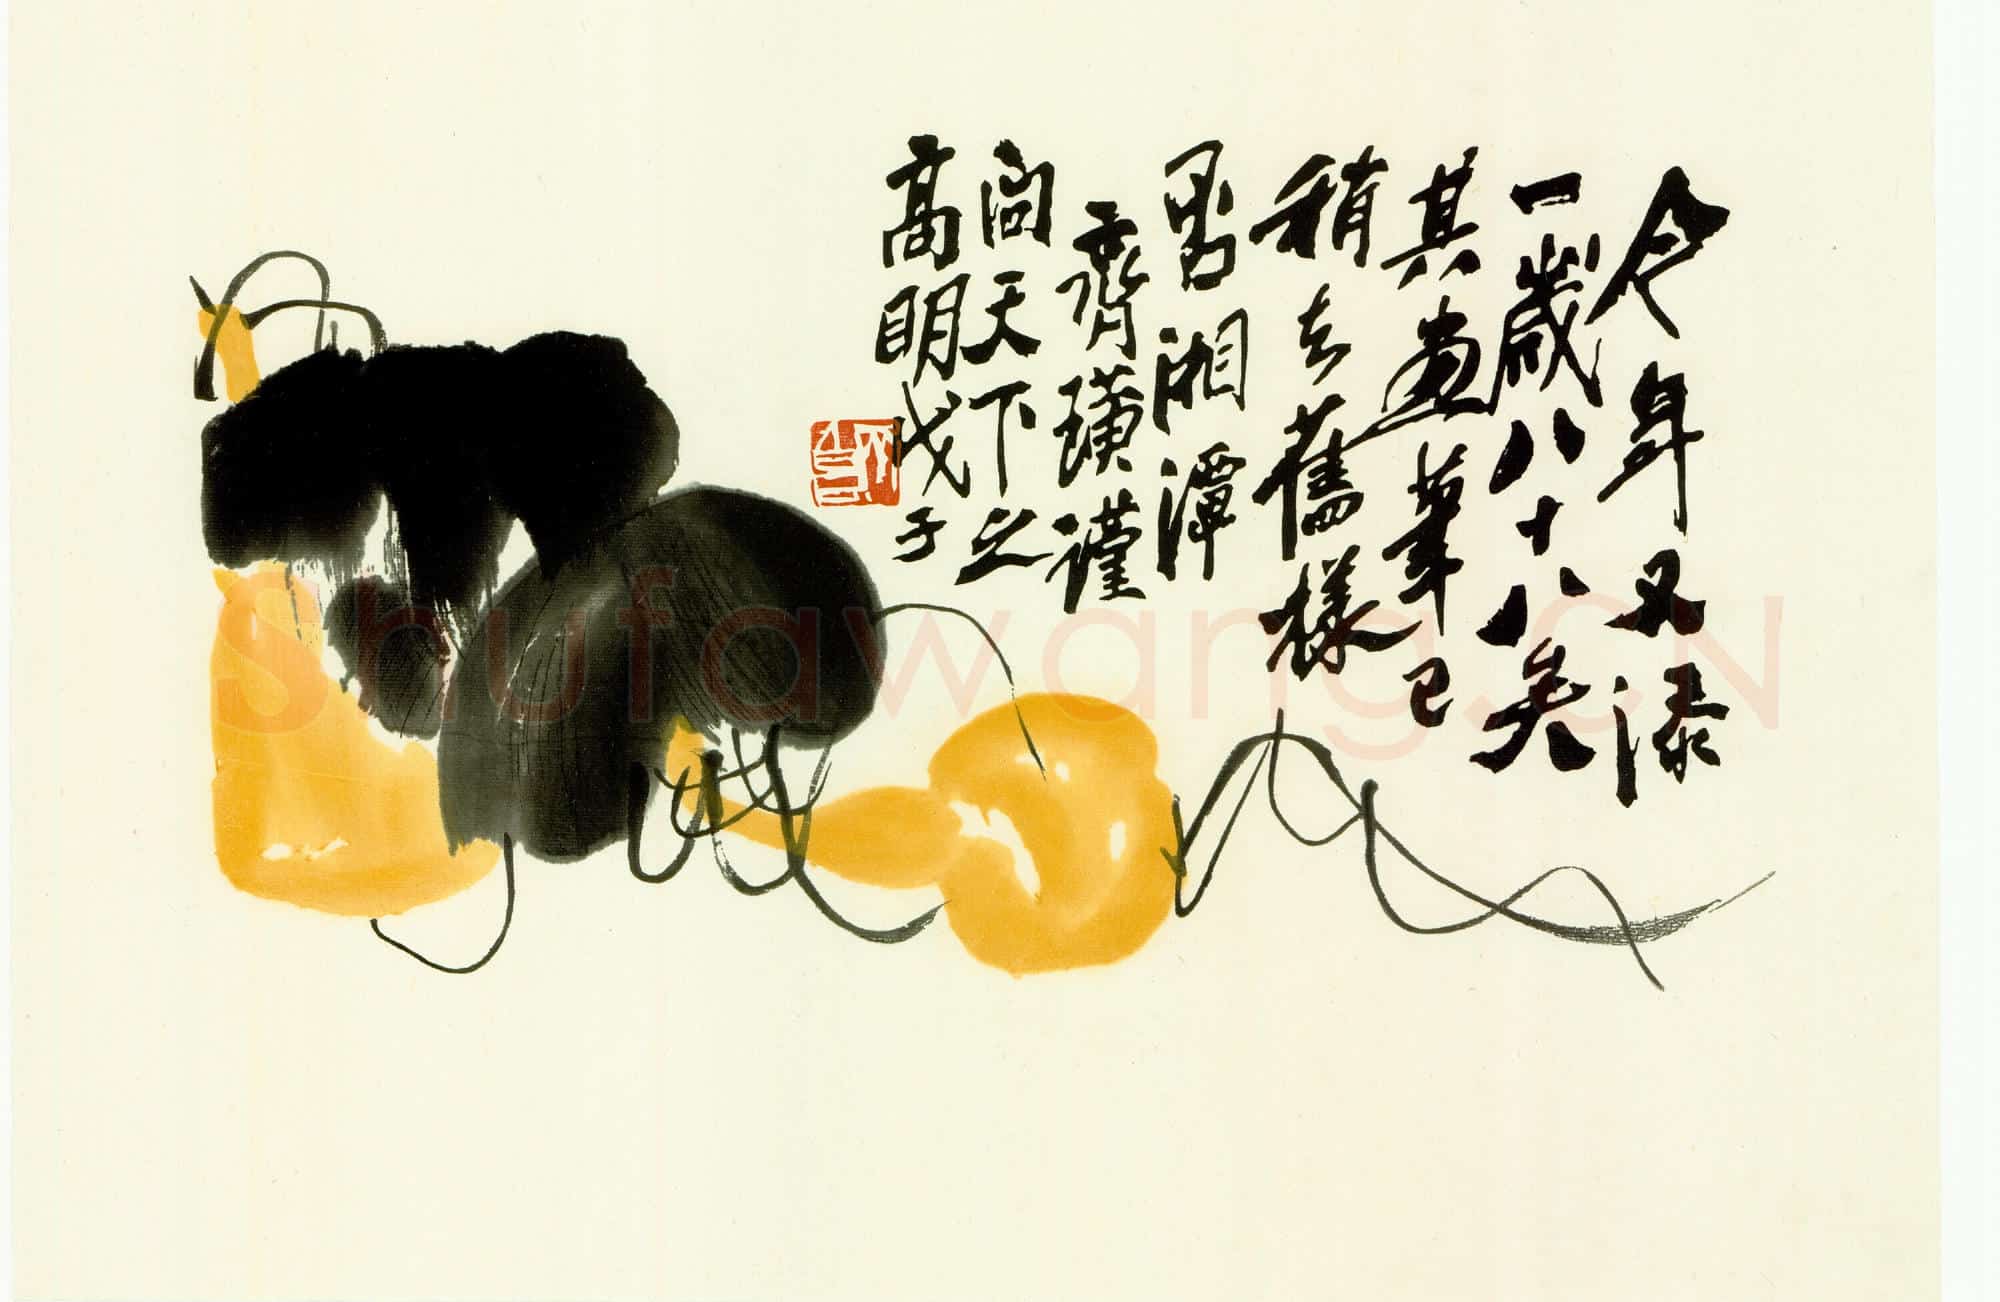 今年又添
一歲八十八矣
其畫筆已
稍去舊樣
湘潭
齊璜謹
問天下之
高明戊子
Shufawang.CN